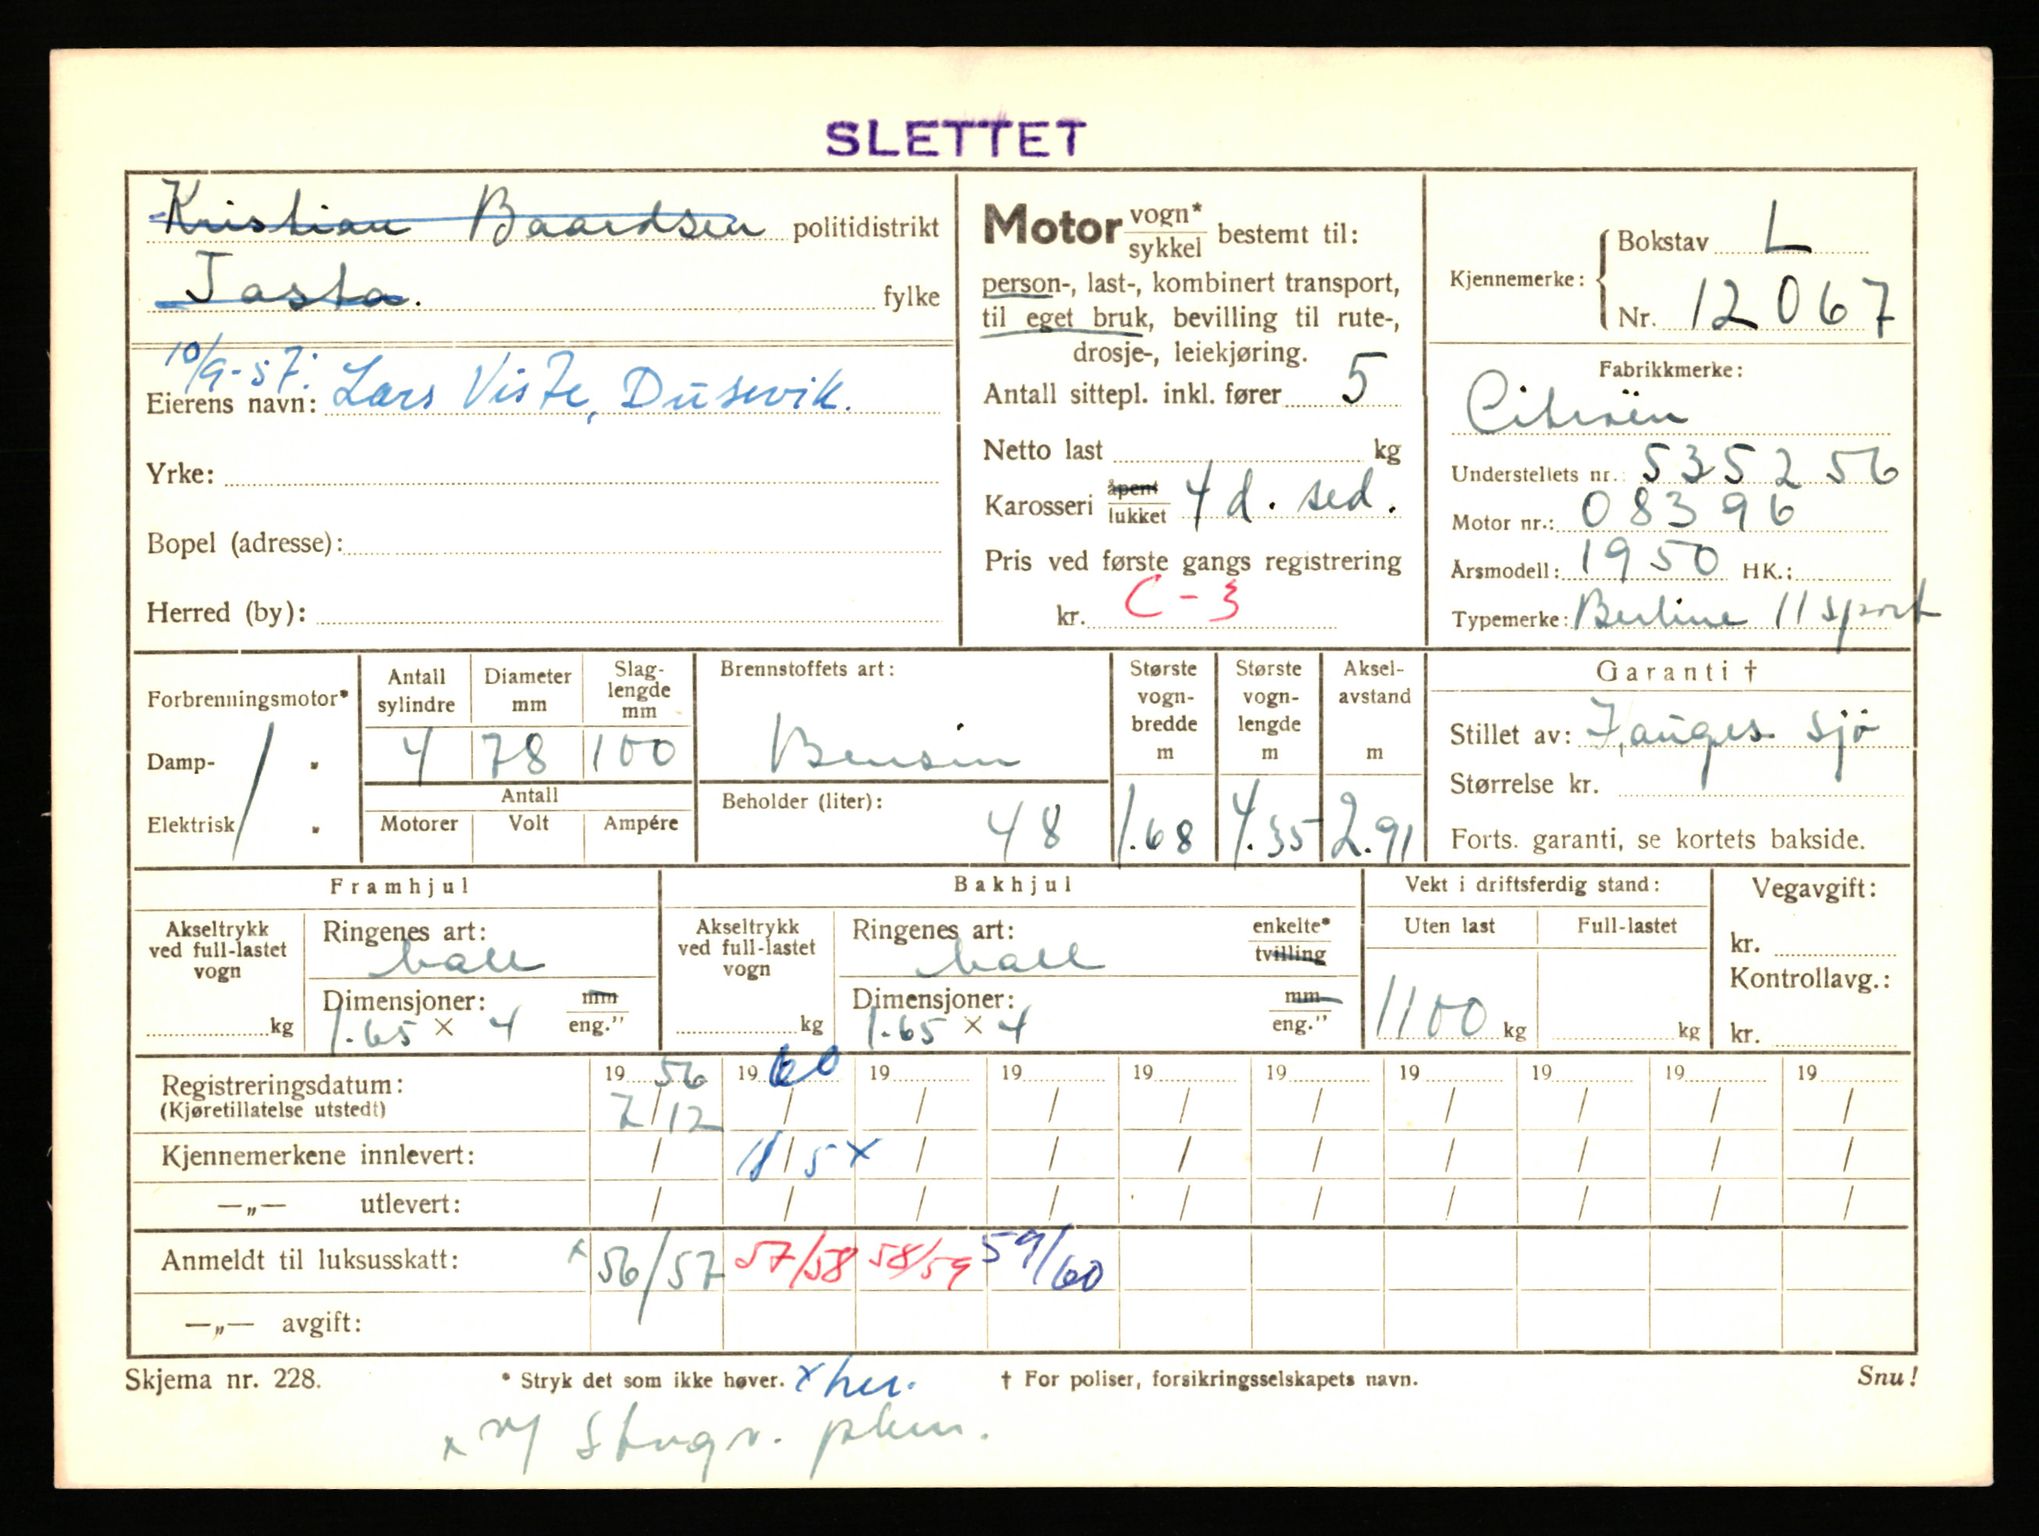 SLETTET
Kristian Baardsen politidistrikt
Tasta. fylke
10/9-57:
Eierens navn: Lars Viste, Dusevik.
Yrke:
Bopel (adresse):
Herred (by):
Motor vogn* / sykkel bestemt til:
person-, last-, kombinert transport,
til eget bruk, bevilling til rute-,
drosje-, leiekjøring.
Antall sittepl. inkl. fører 5
Netto last kg
Karosseri åpent / lukket 4 d. sed.
Pris ved første gangs registrering
kr. C-3
Kjennemerke: Bokstav L
Nr. 12067
Fabrikkmerke:
Citroën
Understellets nr.: 535256
Motor nr.: 08396
Årsmodell: 1950 HK.:
Typemerke: Berline 11 sport
Forbrenningsmotor*
Damp- "
Elektrisk "
Antall sylindre Diameter mm Slaglengde mm
4 78 100
Antall
Motorer Volt Ampére
Brennstoffets art:
Bensin
Beholder (liter):
48
Største vogn-bredde m
1.68
Største vogn-lengde m
4.35
Aksel-avstand m
2.91
Garanti †
Stillet av: Hauges sjø
Størrelse kr.
Forts. garanti, se kortets bakside.
Framhjul
Akseltrykk ved full-lastet vogn
kg
Ringenes art:
ball
Dimensjoner: mm / eng."
1.65 × 4
Bakhjul
Akseltrykk ved full-lastet vogn
kg
Ringenes art: enkelte* / tvilling
ball
Dimensjoner: mm / eng."
1.65 × 4
Vekt i driftsferdig stand:
Uten last Full-lastet
1100 kg kg
Vegavgift:
kr.
Kontrollavg.:
kr.
Registreringsdatum: 19 56 19 60 19 19 19 19 19 19 19 19
(Kjøretillatelse utstedt) 7/12 / / / / / / / / /
Kjennemerkene innlevert: / 18/5 x / / / / / / / /
—„— utlevert: / / / / / / / / / /
Anmeldt til luksusskatt: x 56/57 57/58 58/59 59/60
—„— avgift:
Skjema nr. 228. * Stryk det som ikke høver. x her. † For poliser, forsikringsselskapets navn. Snu!
x